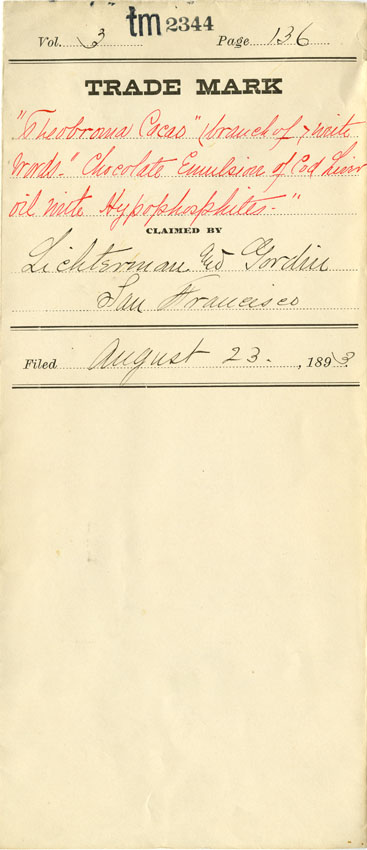 tm 2344
Vol. 3 Page 136
TRADE MARK
"Theobroma Cacao" (branch of) with
Words - "Chocolate Emulsion of Cod Liver
oil with Hypophosphites."
CLAIMED BY
Lichterman and Gordin
San Francisco
Filed August 23. , 1893.